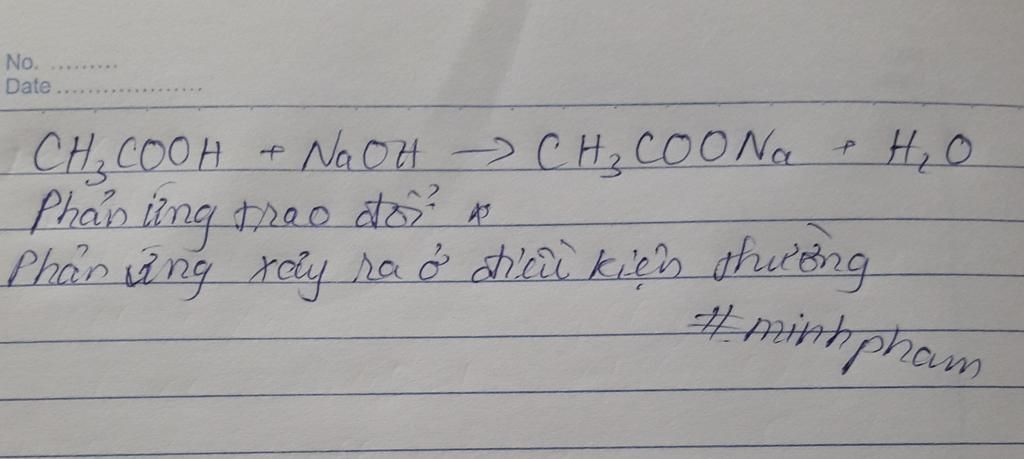 No. .........
Date ...................
CH₃COOH + NaOH → CH₃COONa + H₂O
Phản ứng trao đổi
Phản ứng xảy ra ở điều kiện thường
#minhpham